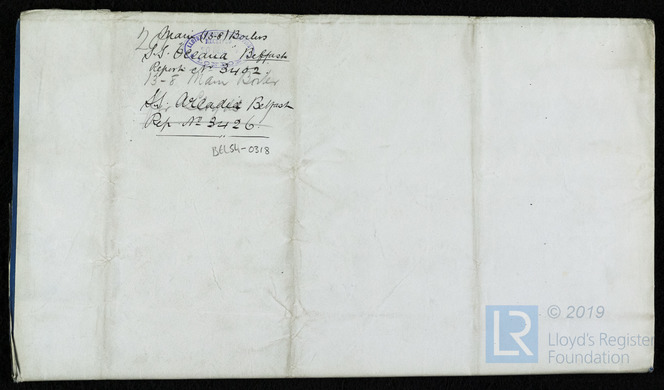 Main (13-8) Boilers
S.S. "Oceana" Belfast
Report No 3402
13-8 Main Boiler
SS. Arcadia Belfast
Rep. No 3426
BEL54-0318
© 2019
LR
Lloyd's Register
Foundation